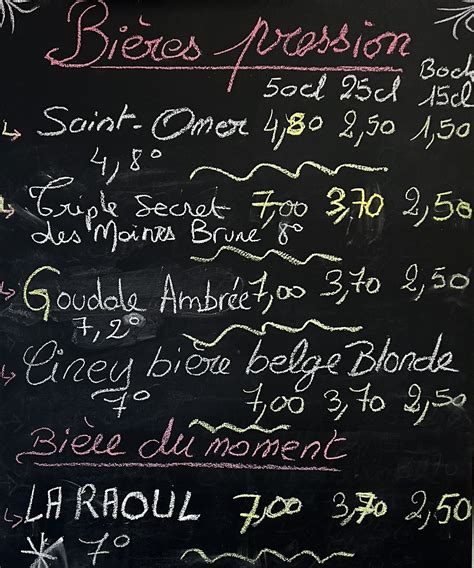 Bières pression
50cl 25cl Bock 15cl
Saint-Omer 4,80 2,50 1,50
4,8°
Triple Secret 7,00 3,70 2,50
des Moines Brune 8°
Goudale Ambrée 7,00 3,70 2,50
7,2°
Ciney bière belge Blonde
7° 7,00 3,70 2,50
Bière du moment
LA RAOUL 7,00 3,70 2,50
7°